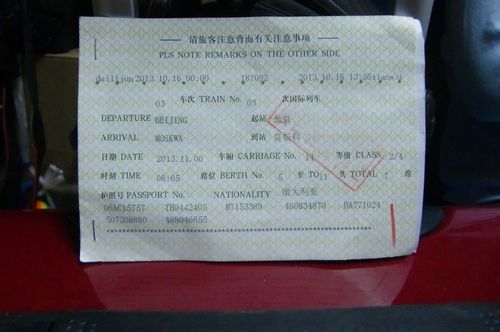 请旅客注意背面有关注意事项
PLS NOTE REMARKS ON THE OTHER SIDE
dailijun 2013.10.16 00:00 181092 2013.10.16 13:56
03 车次 TRAIN No. 03 次国际列车
DEPARTURE BEIJING 起站 北京
ARRIVAL MOSKWA 到站 莫斯科
日期 DATE 2013.11.06 车厢 CARRIAGE No. 11 等级 CLASS 2/4
时刻 TIME 08:05 席位 BERTH No. 5 至 TO 11 共 TOTAL 7 席
护照号 PASSPORT No. NATIONALITY 澳大利亚
06AC15757 TB9442405 M7153389 460834870 BA771924
507308880 488046655